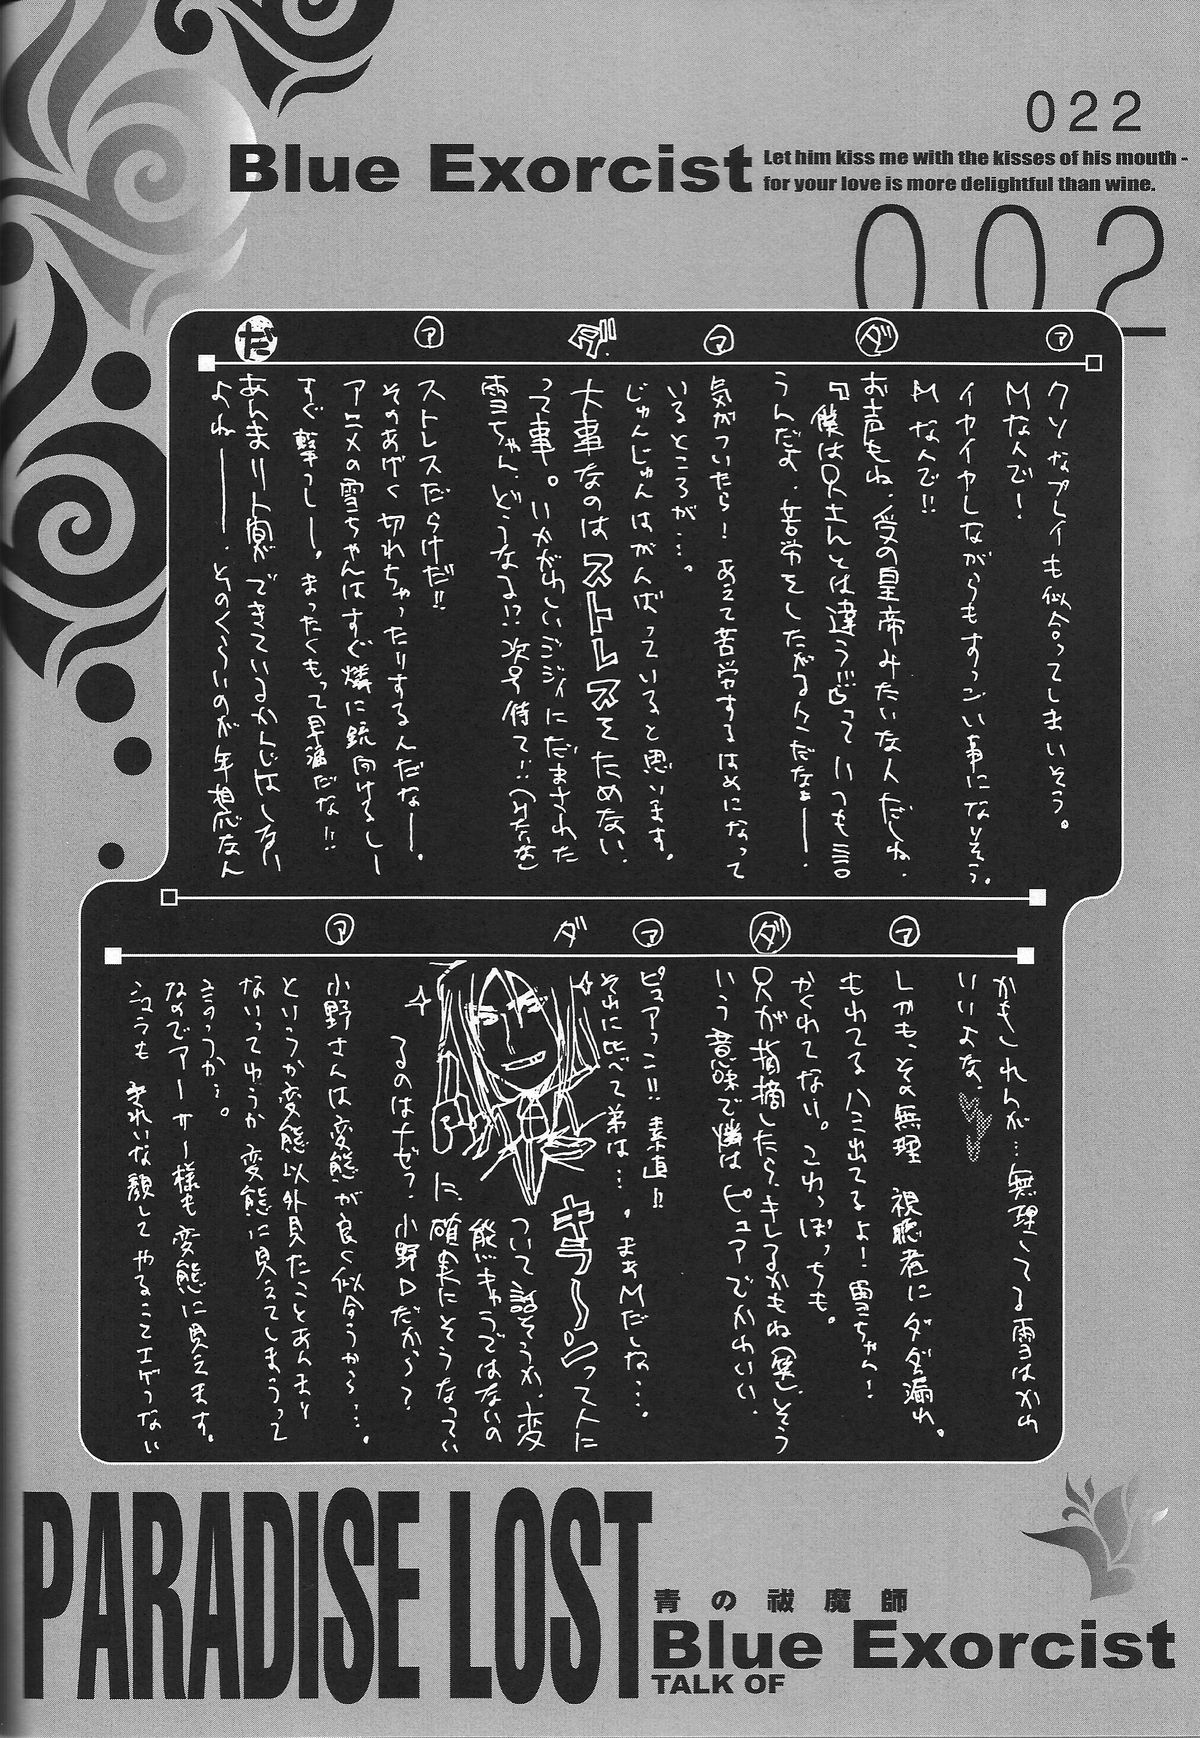 022
Blue Exorcist
Let him kiss me with the kisses of his mouth -
for your love is more delightful than wine.
002
ア
クソなプレイも似合ってしまいそう。
Mなんで!
イヤイヤしながらもすっごい事になりそう。
Mなんで!!
ダ
お声もね、受の皇帝みたいな人だしね、
『僕は兄さんとは違う!!!』って いつも言
うんだよ、苦労をしたがるんだなぁー。
ア
気がついたら! あえて苦労するはめになって
いるところが…。
じゅんじゅんはがんばっていると思います。
ダ
大事なのはストレスをためない、
って事。いかがわしいジジィにだまされた
雪ちゃん、どうなる!? 次号待て!!
ア
ストレスだらけだ!!
そのあげく切れちゃったりするんだなー。
アニメの雪ちゃんはすぐ燐に銃向けるしー
すぐ撃つしー。まったくもって早漏だな!!
だ
あんまり人間ができているかんじはしない
よねー、とのくらいのが年相応なん
かもしれんが…無理してる雪はかわ
いいよな、
ア
しかも、その無理 視聴者にダダ漏れ。
もれてる ハミ出てるよ! 雪ちゃん!
かくれてない。これっぽっちも。
ダ
兄が指摘したら、キレるかもね(笑)、そう
いう意味で燐は ピュアでかわいい、
ア
ピュアっこ!! 素直!!
それに比べて弟は…。まぁMだしな…。
ダ
キラーンって人に
ついて話そうか、変
態キャラではないの
に、確実にそうなってい
るのはナゼ? 小野Dだから?
ア
小野さんは変態が良く似合うから…。
というか変態以外見たことあんまり
ないってゆうか変態に見えてしまうって
言うか…。
なのでアーサー様も変態に見えます。
シュラも きれいな顔して やることエゲつない
PARADISE LOST
青の祓魔師
Blue Exorcist
TALK OF